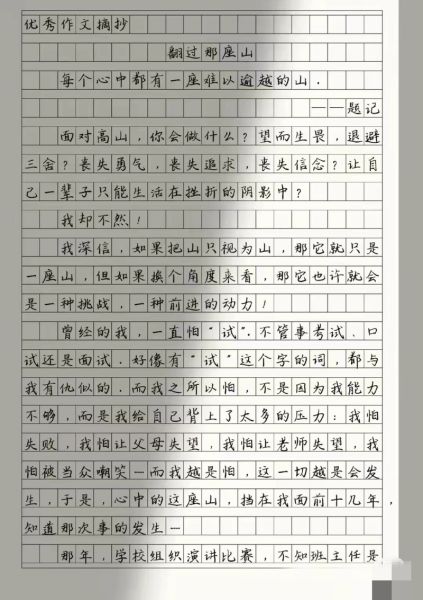 优秀作文摘抄
翻过那座山
每个心中都有一座难以逾越的山.
——题记
面对高山，你会做什么？望而生畏，退避
三舍？丧失勇气，丧失追求，丧失信念？让自
己一辈子只能生活在挫折的阴影中？
我却不然！
我深信，如果把山只视为山，那它就只是
一座山，但如果换个角度来看，那它也许就会
是一种挑战，一种前进的动力！
曾经的我，一直怕“试”.不管事考试、口
试还是面试.好像有“试”这个字的词，都与
我有仇似的.而我之所以怕，不是因为我能力
不够，而是我给自己背上了太多的压力：我怕
失败，我怕让父母失望，我怕让老师失望，我
怕被当众嘲笑…而我越是怕，这一切越是会发
生，于是，心中的这座山，挡在我面前十几年，
知道那次事的发生…
那年，学校组织演讲比赛，不知班主任是